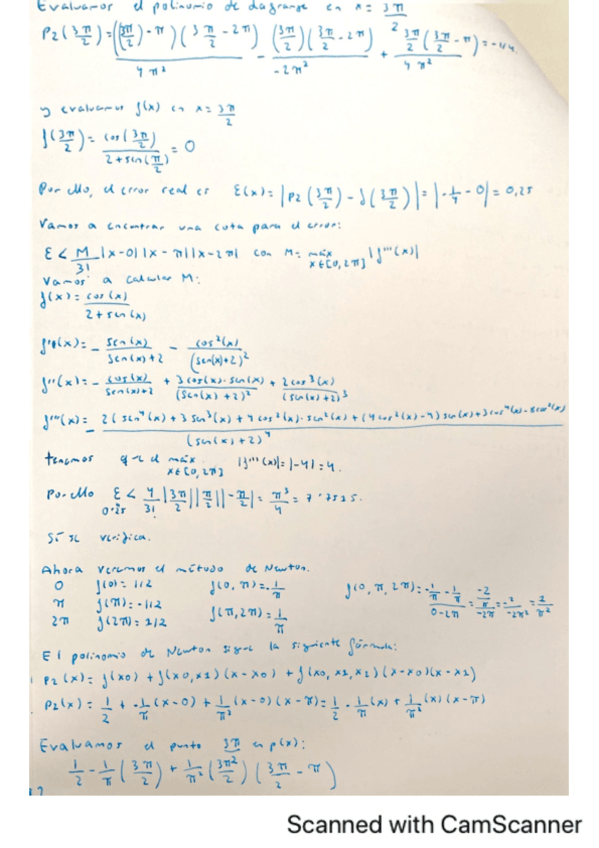 Evaluamos el polinomio de Lagrange en x = 3π/2
P2(3π/2) = ((3π/2) - π)(3π/2 - 2π) / 4π² - (3π/2)(3π/2 - 2π) / -2π² + 3π/2 (3π/2 - π) / 4π² = -1/4.
y evaluamos f(x) en x = 3π/2
f(3π/2) = cos(3π/2) / 2+sen(π/2) = 0
Por ello, el error real es E(x) = |P2(3π/2) - f(3π/2)| = |-1/4 - 0| = 0,25
Vamos a encontrar una cota para el error:
E < M/3! |x-0||x-π||x-2π| con M = máx x∈[0,2π] |f'''(x)|
Vamos a calcular M:
f(x) = cos(x) / 2+sen(x)
f'(x) = - sen(x) / sen(x)+2 - cos²(x) / (sen(x)+2)²
f''(x) = - cos(x) / sen(x)+2 + 3cos(x)·sen(x) / (sen(x)+2)² + 2cos³(x) / (sen(x)+2)³
f'''(x) = 2(sen⁴(x) + 3sen³(x) + 4cos²(x)·sen²(x) + (4cos²(x)-4)sen(x) + 3cos⁴(x) - 8cos²(x)) / (sen(x)+2)⁴
tenemos que el máx x∈[0,2π] |f'''(x)| = |-4| = 4.
Por ello E < 4/3! |3π/2||π/2||-π/2| = π³/4 = 7'7515.
0.25
Sí se verifica.
Ahora veremos el método de Newton.
0 f(0) = 1/2 f(0, π) = -1/π f(0, π, 2π) = -1/π - 1/π / 0-2π = -2/π / -2π = -2 / -2π² = 1/π²
π f(π) = -1/2 f(π, 2π) = 1/π
2π f(2π) = 1/2
El polinomio de Newton sigue la siguiente fórmula:
P2(x) = f(x0) + f(x0,x1)(x-x0) + f(x0,x1,x2)(x-x0)(x-x1)
P2(x) = 1/2 + -1/π (x-0) + 1/π² (x-0)(x-π) = 1/2 - 1/π (x) + 1/π² (x)(x-π)
Evaluamos el punto 3π/2 en p(x):
1/2 - 1/π (3π/2) + 1/π² (3π²/2)(3π/2 - π)
Scanned with CamScanner